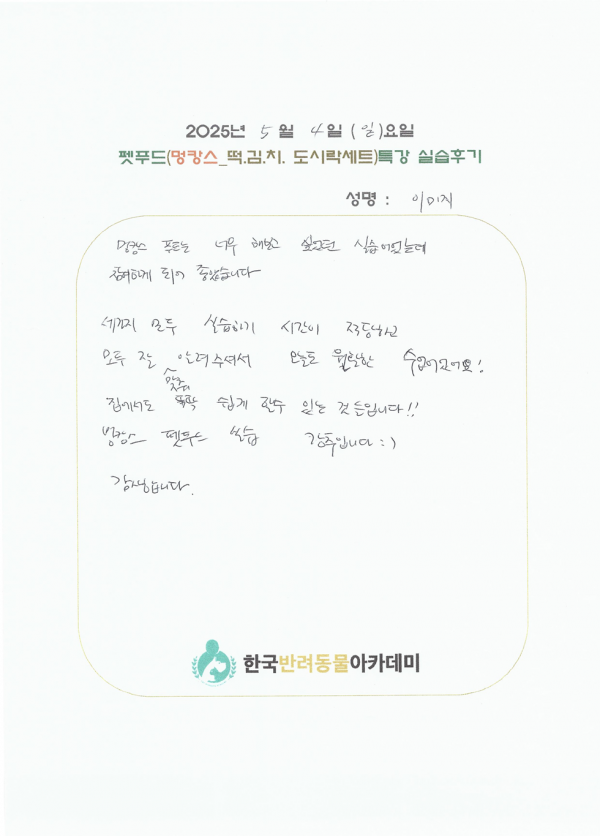 2025년 5월 4일 (일)요일
펫푸드(멍캉스_떡.김.치. 도시락세트)특강 실습후기
성명 : 이미지
멍캉스 푸드는 너무 해보고 싶었던 실습이었는데
참여하게 되어 좋았습니다
세가지 모두 실습하기 시간이 적당하고
모두 잘 알려주셔서 오늘도 원활한 수업이었어요!
집에서도 쉽게 할수 있는 것 같습니다!!
멍캉스 펫푸드 실습 강추입니다 :)
감사합니다.
한국반려동물아카데미